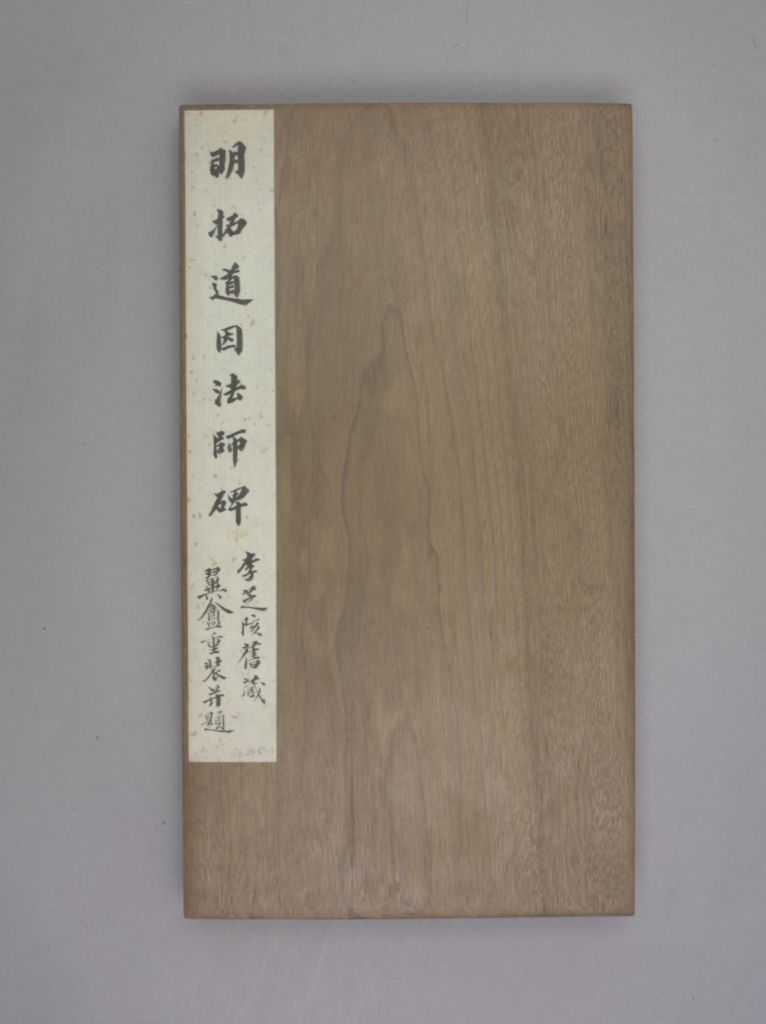 明拓道因法師碑
李芝陔舊藏
翼盦重裝并題